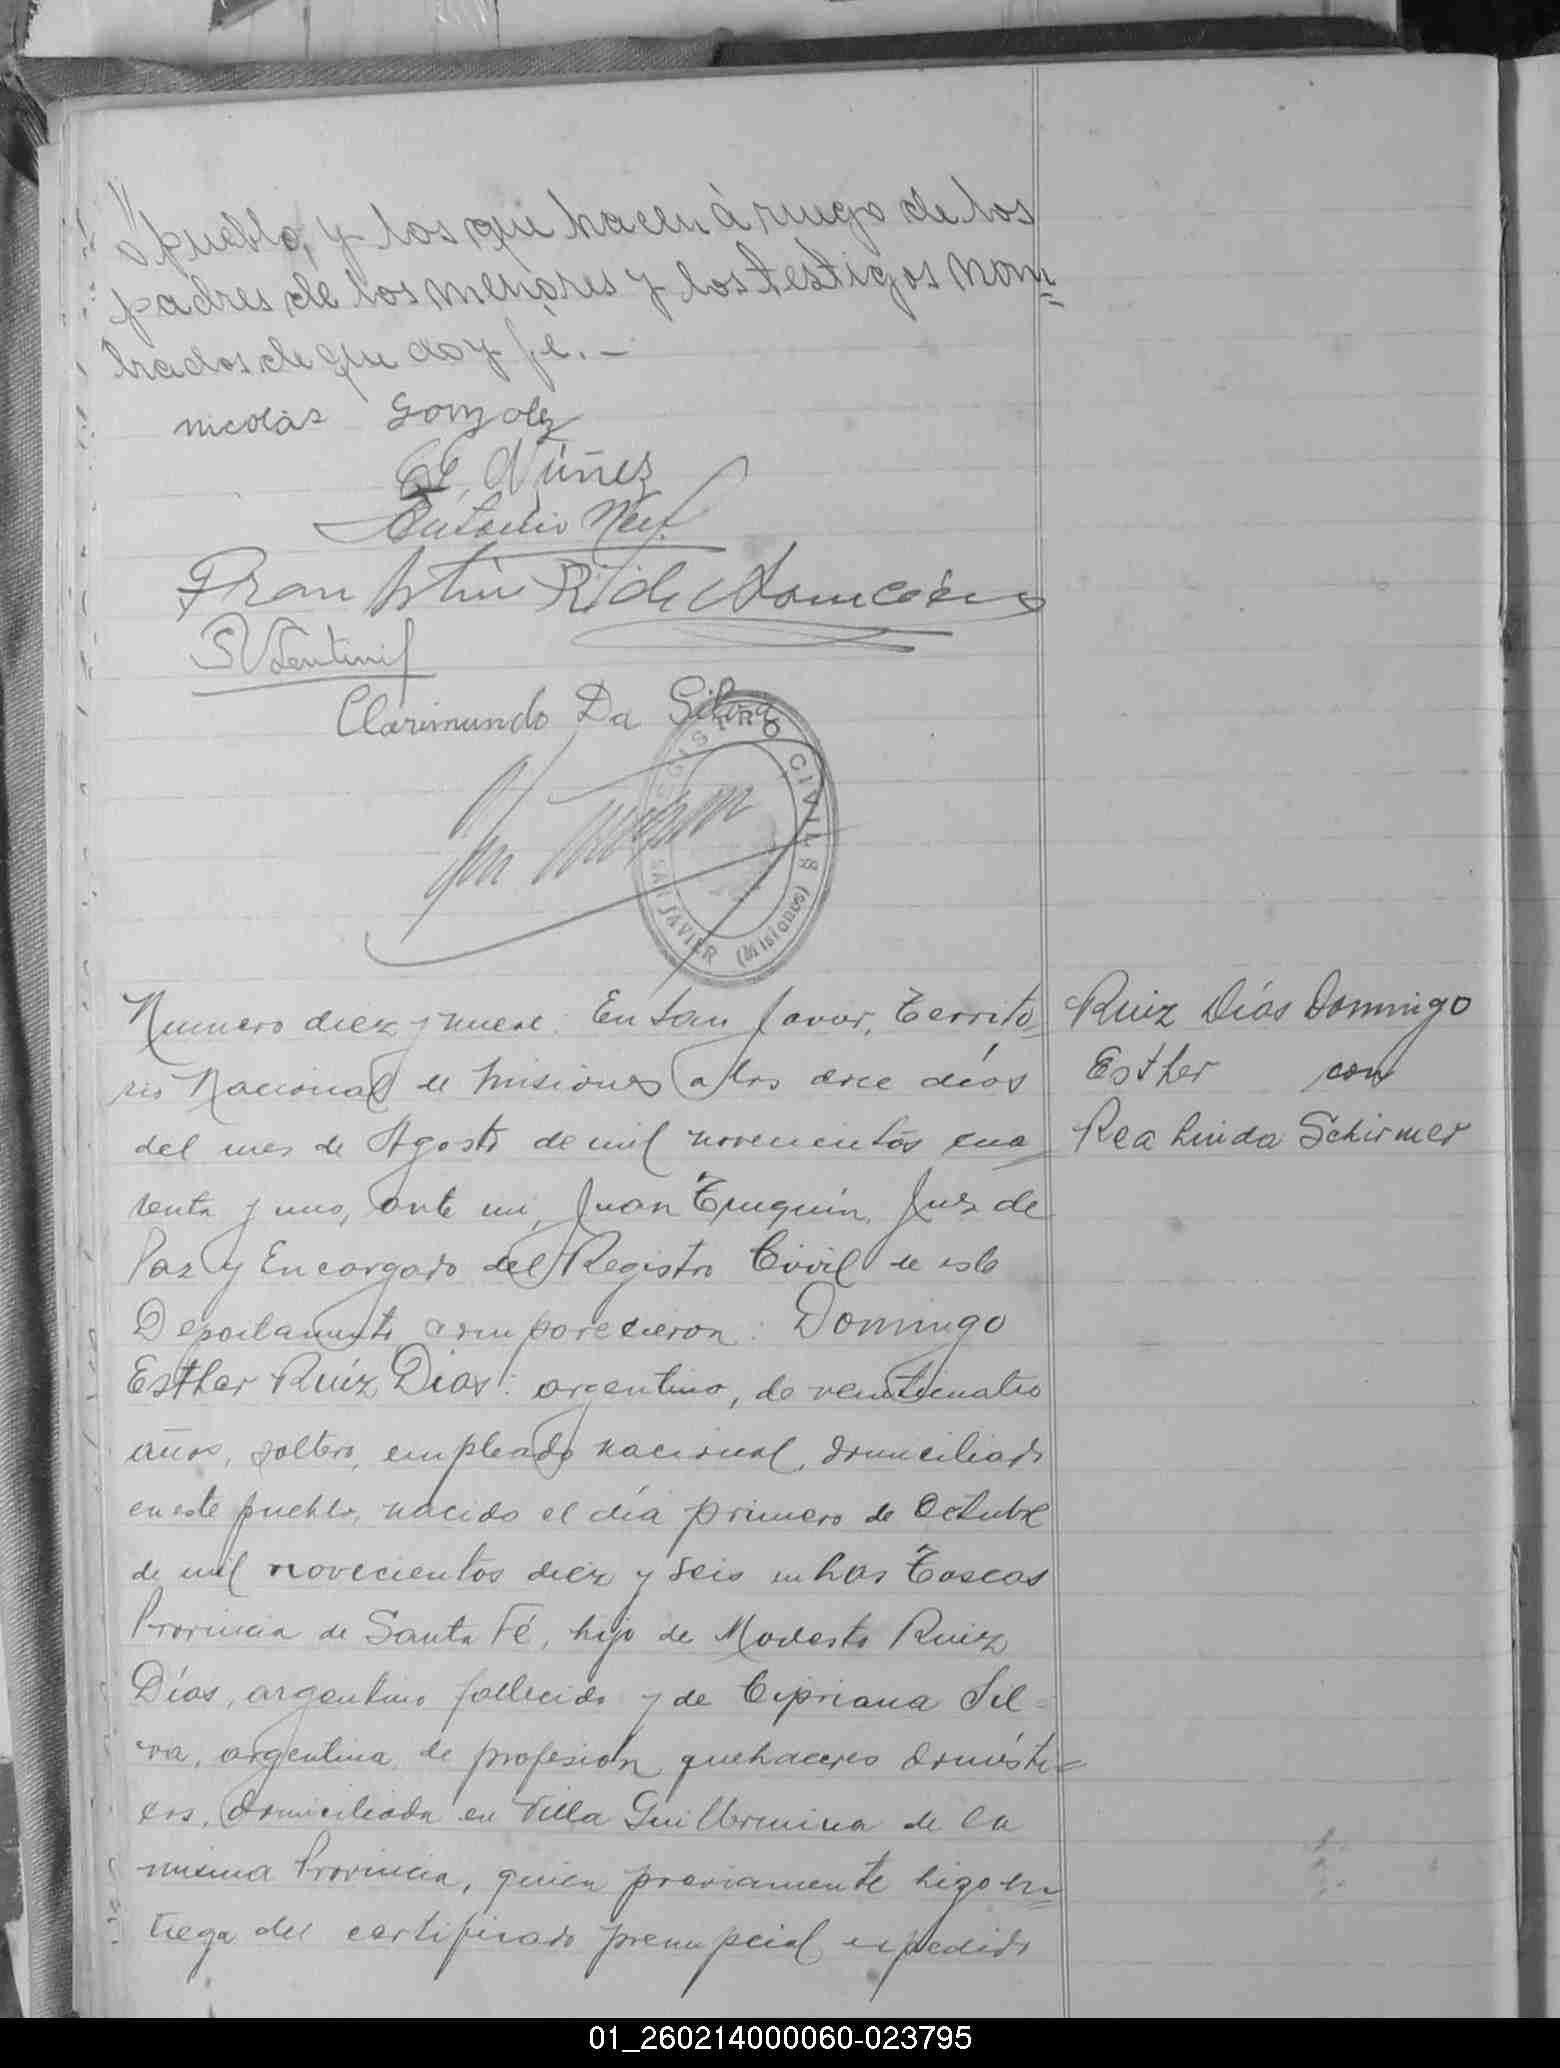 pueblo, y los que hacen à ruego de los
padres de los menores y los testigos nom=
brados de que doy fé. –
nicolás Gonzalez
Núñez
Antonio
Clarimundo Da Silva
REGISTRO CIVIL
SAN JAVIER (Misiones)
Numero diez y nueve. En San Javier, Territo=
rio Nacional de Misiones a los doce días
del mes de Agosto de mil novecientos cua
renta y uno, ante mi, Juan Truquin, Juez de
Paz y Encargado del Registro Civil de este
Departamento comparecieron: Domingo
Esther Ruíz Días: argentino, de veinticuatro
años, soltero, empleado nacional, domiciliado
en este pueblo, nacido el día primero de Octubre
de mil novecientos diez y seis en Las Toscas
Provincia de Santa Fé, hijo de Modesto Ruiz
Días, argentino fallecido y de Cipriana Sil=
va, argentina, de profesión quehaceres domésti=
cos, domiciliada en Villa Guillermina de la
misma Provincia, quien previamente hizo en=
trega del certificado prenupcial expedido
Ruiz Días Domingo
Esther con
Rea Linda Schirmer
01_260214000060-023795